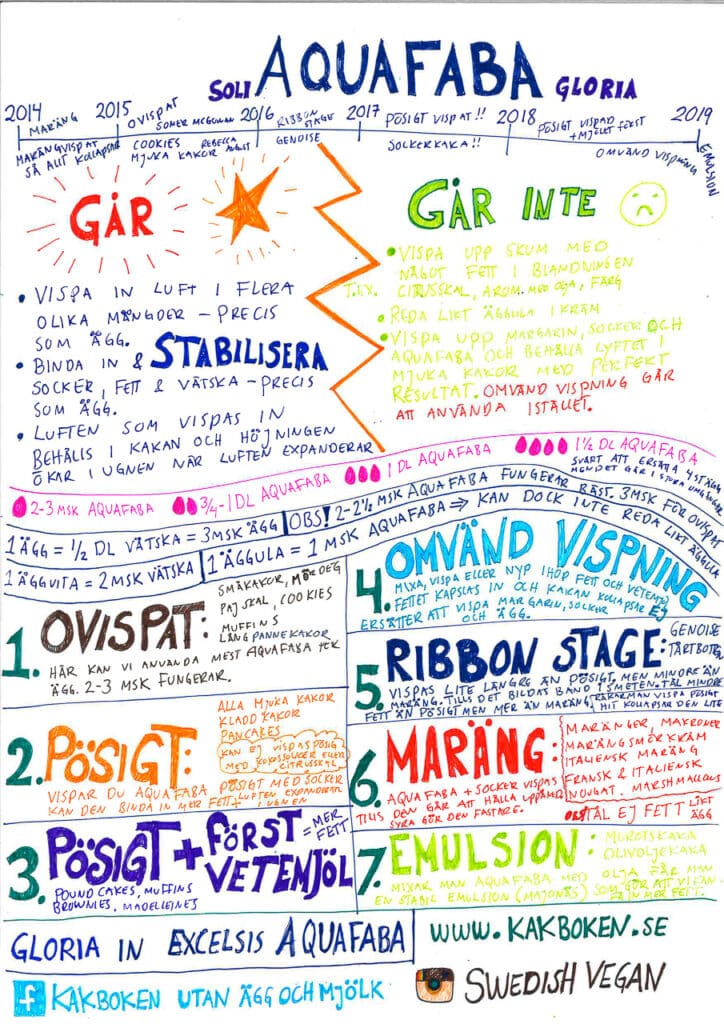 SOLI AQUAFABA GLORIA
2014 2015 2016 2017 2018 2019
MARÄNG
MARÄNGVISPAT
SÅ ALLT KOLLAPSAR
OVISPAT
SOMER MCCOWAN
COOKIES
MJUKA KAKOR
REBECCA
AUGUST
RIBBON
STAGE
GENOISE
PÖSIGT VISPAT!!
SOCKERKAKA!!
PÖSIGT VISPAD
+ MJÖLET FÖRST
OMVÄND VISPNING
EMULSION
GÅR
• VISPA IN LUFT I FLERA
OLIKA MÄNGDER – PRECIS
SOM ÄGG.
• BINDA IN & STABILISERA
SOCKER, FETT & VÄTSKA – PRECIS
SOM ÄGG.
• LUFTEN SOM VISPAS IN
BEHÅLLS I KAKAN OCH HÖJNINGEN
ÖKAR I UGNEN NÄR LUFTEN EXPANDERAR
GÅR INTE
• VISPA UPP SKUM MED
NÅGOT FETT I BLANDNINGEN
T.EX. CITRUSSKAL, AROM MED OLJA, FÄRG
• REDA LIKT ÄGGULA I KRÄM
• VISPA UPP MARGARIN, SOCKER OCH
AQUAFABA OCH BEHÅLLA LYFTET I
MJUKA KAKOR MED PERFEKT
RESULTAT. OMVÄND VISPNING GÅR
ATT ANVÄNDA ISTÄLLET.
2-3 MSK AQUAFABA
3/4-1 DL AQUAFABA
1 DL AQUAFABA
1 1/2 DL AQUAFABA
SVÅRT ATT ERSÄTTA 4 ST ÄGG
1 ÄGG = 1/2 DL VÄTSKA = 3 MSK ÄGG
OBS! 2-2 1/2 MSK AQUAFABA FUNGERAR BÄST. 3 MSK FÖR OVISPAT
1 ÄGGVITA = 2 MSK VÄTSKA
1 ÄGGULA = 1 MSK AQUAFABA ⇒ KAN DOCK INTE REDA LIKT ÄGGULA
1. OVISPAT:
SMÅKAKOR, MÖRDEG
PAJSKAL, COOKIES
MUFFINS
LÅNGPANNEKAKOR
HÄR KAN VI ANVÄNDA MEST AQUAFABA
ÄGG. 2-3 MSK FUNGERAR.
2. PÖSIGT:
ALLA MJUKA KAKOR
KLADDKAKOR
PANCAKES
KAN EJ VISPAS PÖSIG
MED KOKOSSOCKER ELLER
CITRUSSKAL
VISPAR DU AQUAFABA PÖSIGT MED SOCKER
KAN DEN BINDA IN MER FETT + LUFTEN EXPANDERAR
I UGNEN
3. PÖSIGT + FÖRST
VETEMJÖL
= MER
FETT
POUND CAKES, MUFFINS
BROWNIES, MADELEINES
4. OMVÄND VISPNING
MIXA, VISPA ELLER NYP IHOP FETT OCH VETEMJÖL
FETTET KAPSLAS IN OCH KAKAN KOLLAPSAR EJ
ERSÄTTER ATT VISPA MARGARIN, SOCKER
OCH ÄGG.
5. RIBBON STAGE:
GENOISE
TÅRTBOTTEN
VISPAS LITE LÄNGRE ÄN PÖSIGT, MEN MINDRE ÄN
MARÄNG. TILLS DET BILDAS BAND I SMETEN. TÅL MINDRE
FETT ÄN PÖSIGT MEN MER ÄN MARÄNG.
HIT KOLLAPSAR DEN LITE
6. MARÄNG:
MARÄNGER, MAKRONER
MARÄNGSMÖRKRÄM
ITALIENSK MARÄNG
FRANSK & ITALIENSK
NOUGAT. MARSHMALLOWS
AQUAFABA + SOCKER VISPAS
TILLS DEN GÅR ATT HÅLLA UPPÅNER
SYRA GÖR DEN FASTARE.
OBS TÅL EJ FETT LIKT
ÄGG
7. EMULSION:
MOROTSKAKA
OLIVOLJEKAKA
MIXAR MAN AQUAFABA MED OLJA FÅR MAN
EN STABIL EMULSION (MAJONÄS) SOM GÖR ATT VI KAN
FÅ IN MER FETT.
GLORIA IN EXCELSIS AQUAFABA
WWW.KAKBOKEN.SE
f KAKBOKEN UTAN ÄGG OCH MJÖLK
SWEDISH VEGAN